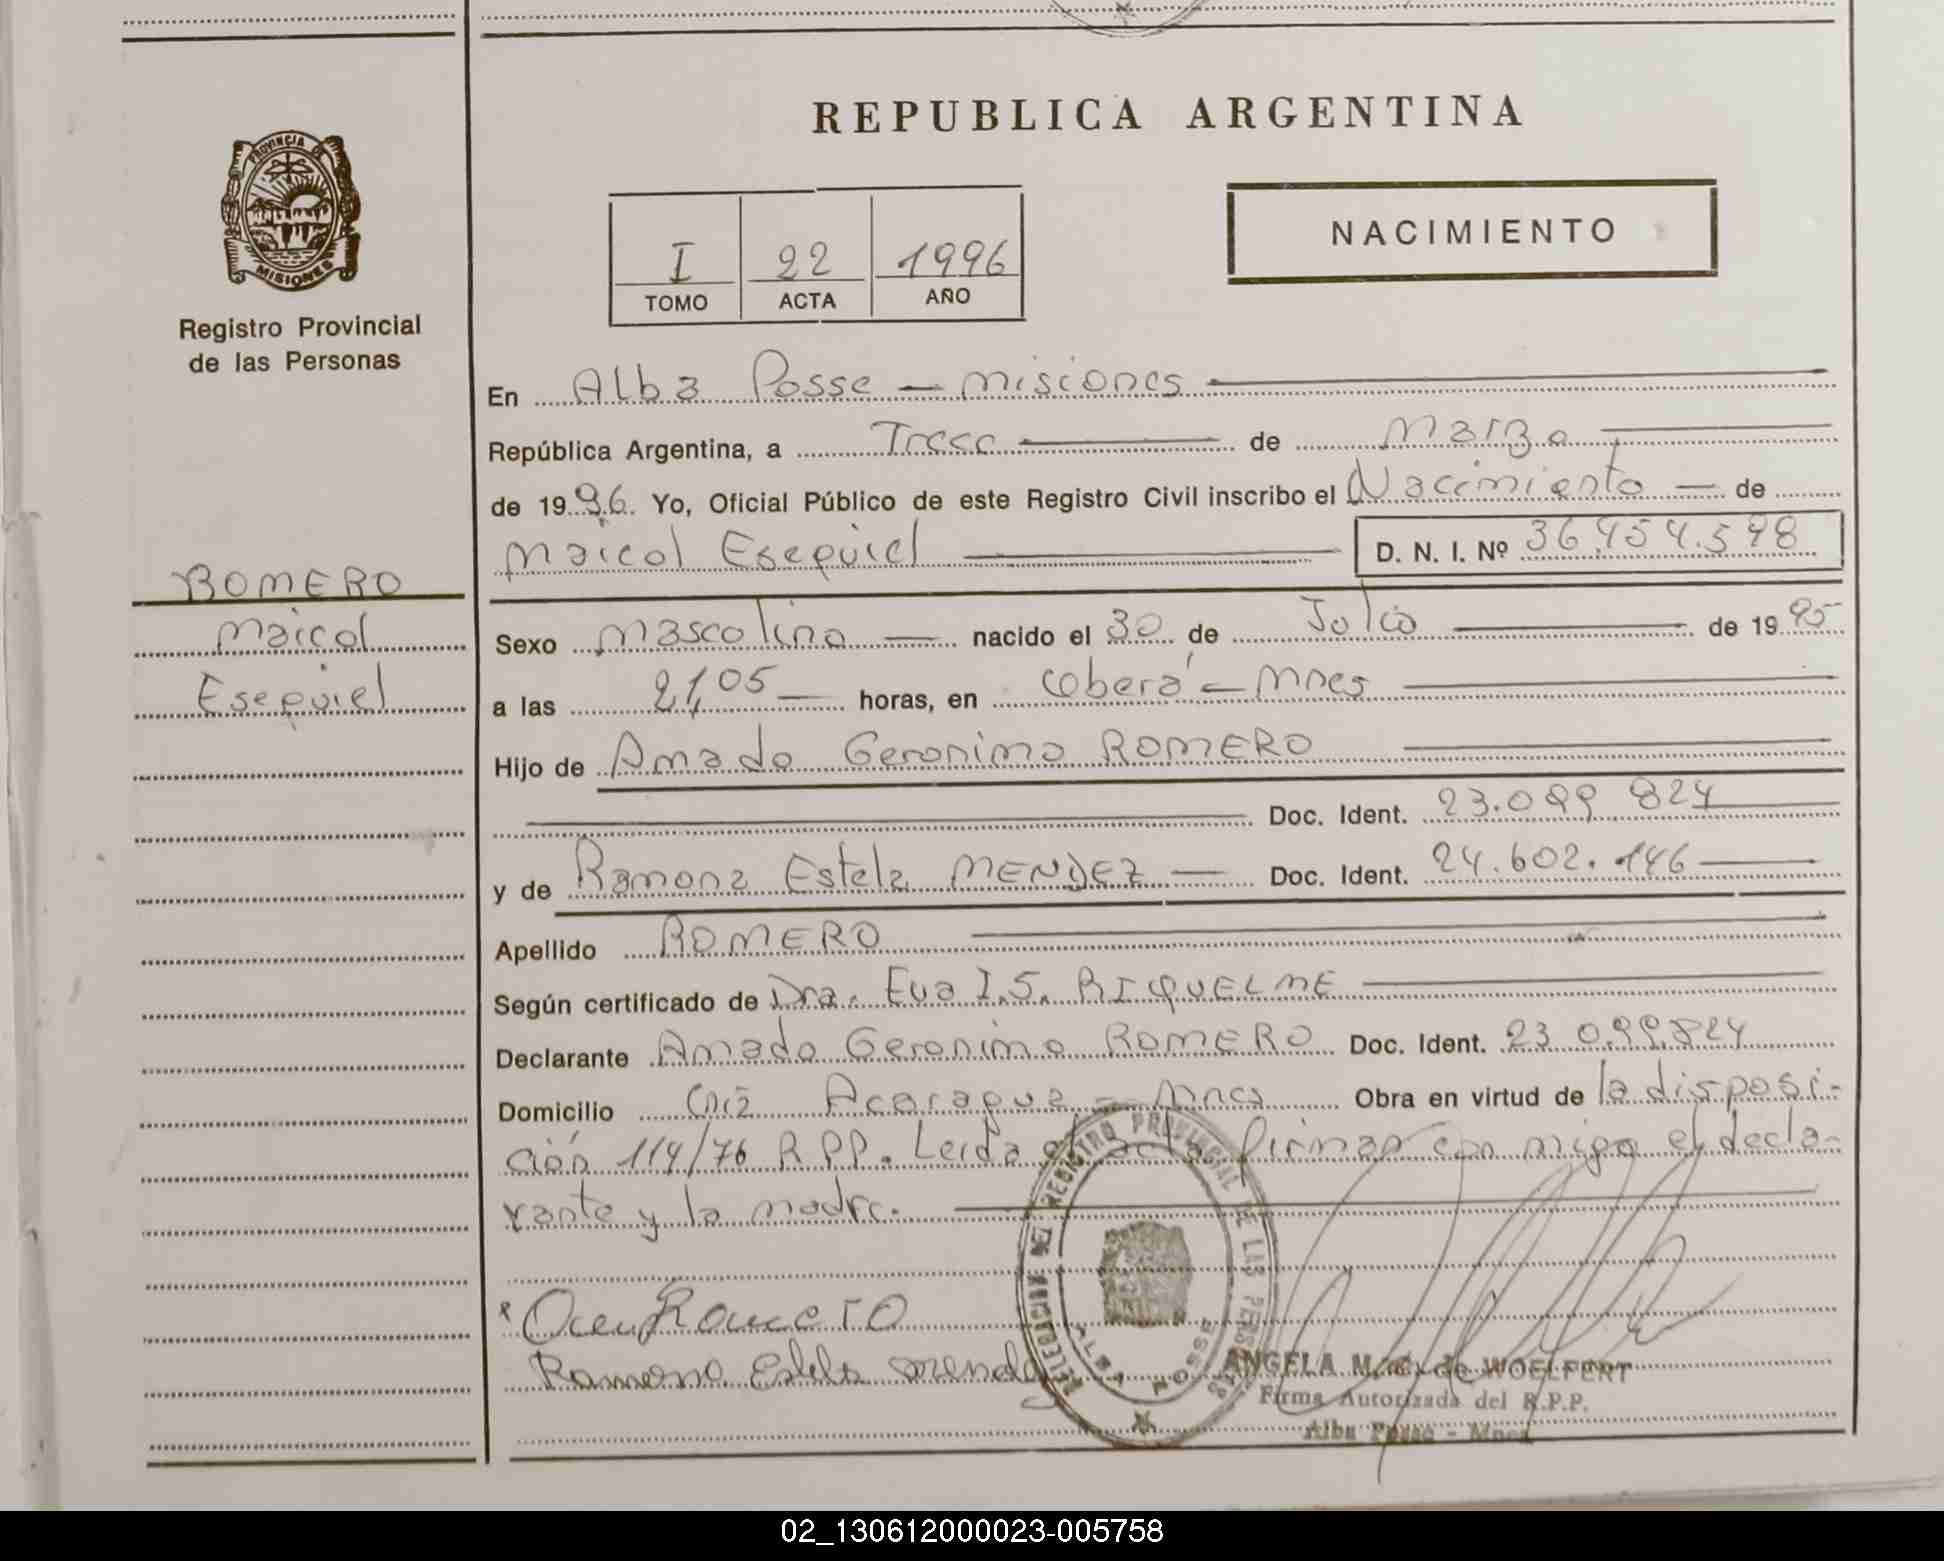 REPUBLICA ARGENTINA
PROVINCIA DE MISIONES
Registro Provincial
de las Personas
I 22 1996
TOMO ACTA AÑO
NACIMIENTO
En Alba Posse - Misiones
República Argentina, a Trece de Marzo
de 1996. Yo, Oficial Público de este Registro Civil inscribo el Nacimiento de
Maicol Esequiel D. N. I. Nº
ROMERO
Maicol
Esequiel
Sexo Masculino nacido el 30 de Julio de 1995
a las 21,05 horas, en Oberá - Mnes
Hijo de Amado Geronimo ROMERO
Doc. Ident. 23.099.824
y de Ramona Estela MENDEZ Doc. Ident. 24.602.146
Apellido ROMERO
Según certificado de Dra. Eva I.S. RIQUELME
Declarante Amado Geronimo ROMERO Doc. Ident. 23.099.824
Domicilio Acaragua - Mnes Obra en virtud de la disposi-
ción 114/76 R.P.P. Leida el acta firman con migo el decla-
rante y la madre.
Romero
Ramona Estela Mendez
REGISTRO PROVINCIAL DE LAS PERSONAS
ALBA POSSE
ANGELA M. de WOELFERT
Firma Autorizada del R.P.P.
Alba Posse - Mnes
02_130612000023-005758